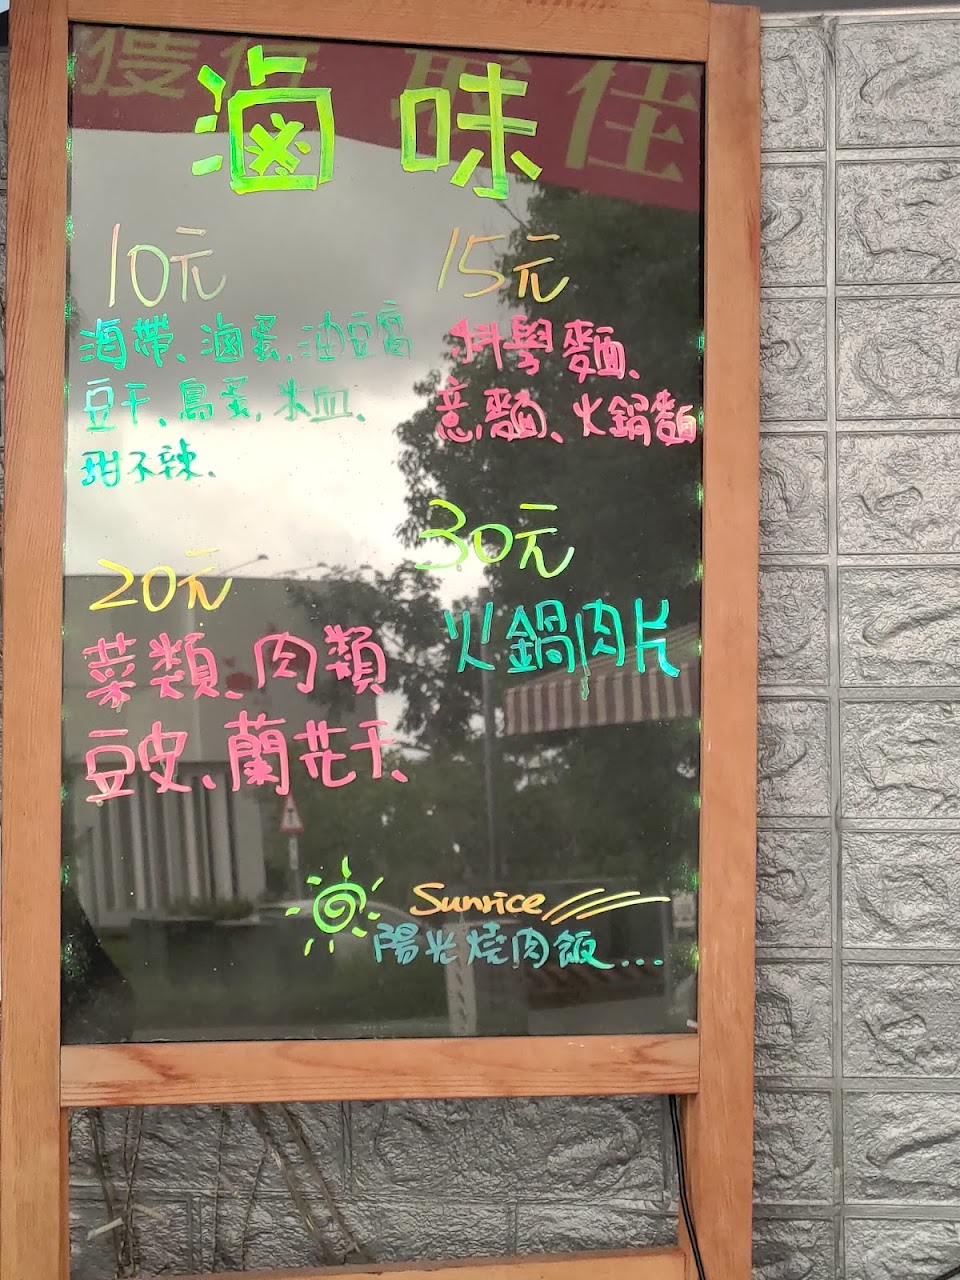 滷味
10元
海帶、滷蛋、油豆腐
豆干、鳥蛋、米血、
甜不辣、
15元
科學麵、
意麵、火鍋麵
20元
菜類、肉類
豆皮、蘭花干、
30元
火鍋肉片
Sunrice
陽光燒肉飯...